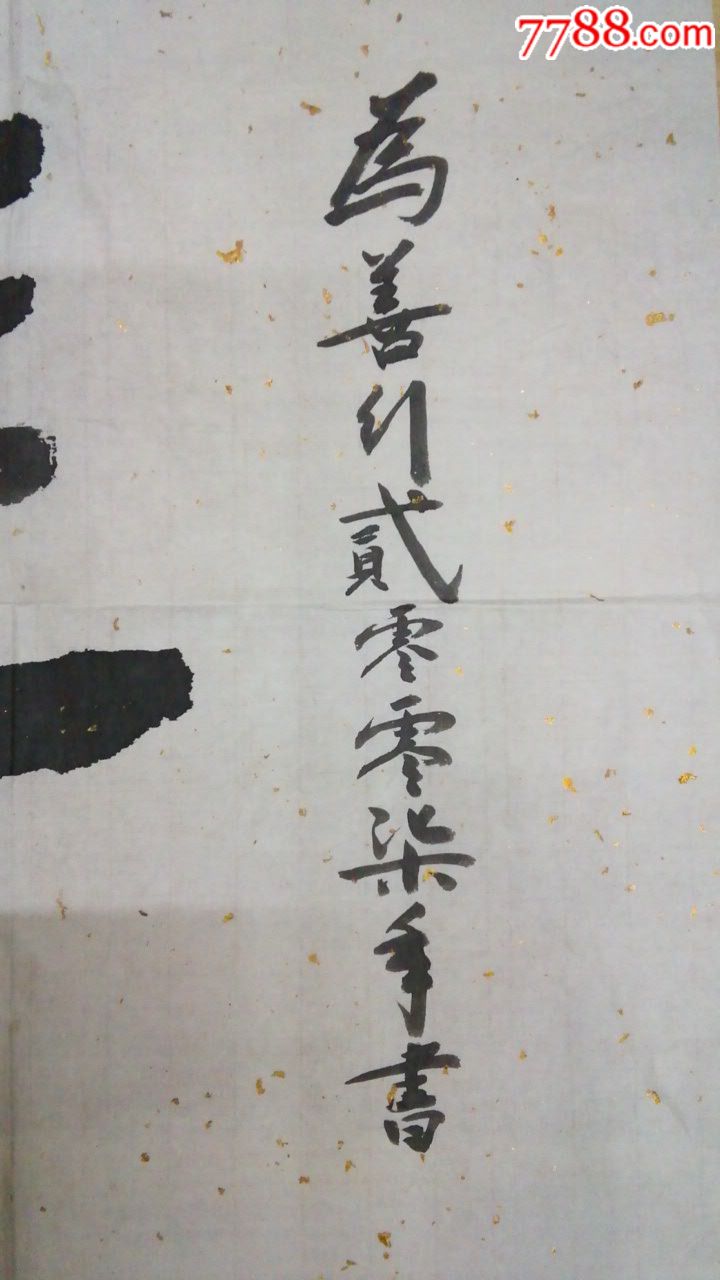 7788.com
為善引貳零零柒年書